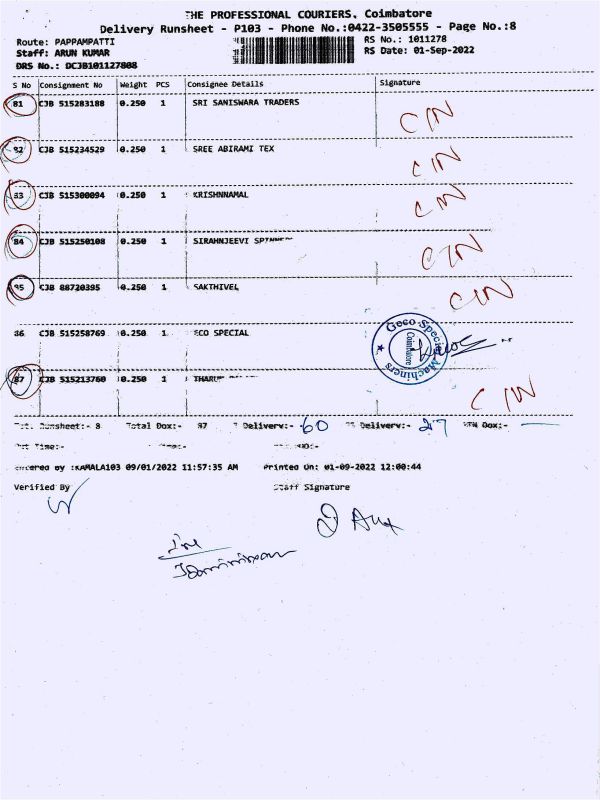 THE PROFESSIONAL COURIERS, Coimbatore
Delivery Runsheet - P103 - Phone No.:0422-3505555 - Page No.:8
Route: PAPPAMPATTI
RS No.: 1011278
Staff: ARUN KUMAR
RS Date: 01-Sep-2022
DRS No.: DCJB101127808
S No Consignment No Weight PCS Consignee Details Signature
81 CJB 515283188 0.250 1 SRI SANISWARA TRADERS
C/N
82 CJB 515234529 0.250 1 SREE ABIRAMI TEX
C/N
83 CJB 515300094 0.250 1 KRISHNNAMAL
C/N
84 CJB 515250108 0.250 1 SIRAHNJEEVI
C/N
85 CJB 88720395 0.250 1 SAKTHIVEL
C/N
86 CJB 515258769 0.250 1 ECO SPECIAL
Geco Special Machines
Coimbatore
87 CJB 515213760 0.250 1
C/N
Runsheet:- 8 Total Dox:- 87 Delivery:- 60 Delivery:- 27 Dox:-
Out Time:-
Entered by :KAMALA103 09/01/2022 11:57:35 AM Printed On: 01-09-2022 12:00:44
Verified By Staff Signature